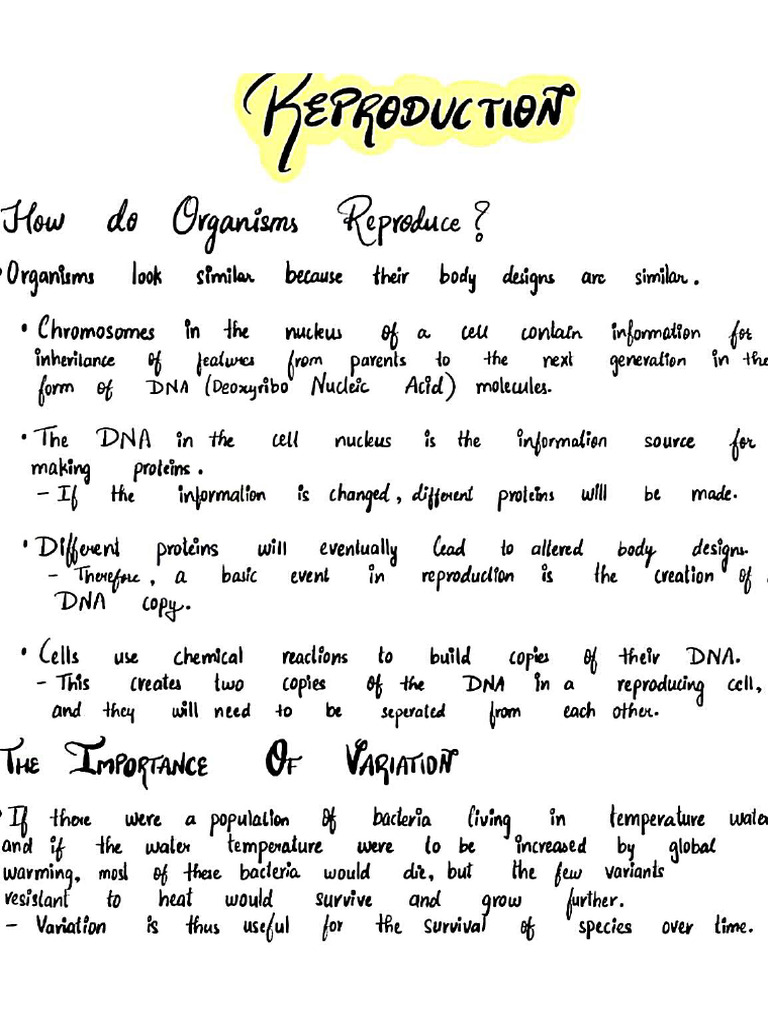 REPRODUCTION
How do Organisms Reproduce?
• Organisms look similar because their body designs are similar.
• Chromosomes in the nucleus of a cell contain information for
inheritance of features from parents to the next generation in the
form of DNA (Deoxyribo Nucleic Acid) molecules.
• The DNA in the cell nucleus is the information source for
making proteins.
– If the information is changed, different proteins will be made.
• Different proteins will eventually lead to altered body designs.
– Therefore, a basic event in reproduction is the creation of
DNA copy.
• Cells use chemical reactions to build copies of their DNA.
– This creates two copies of the DNA in a reproducing cell,
and they will need to be seperated from each other.
THE IMPORTANCE OF VARIATION
• If there were a population of bacteria living in temperature water
and if the water temperature were to be increased by global
warming, most of these bacteria would die, but the few variants
resistant to heat would survive and grow further.
– Variation is thus useful for the survival of species over time.